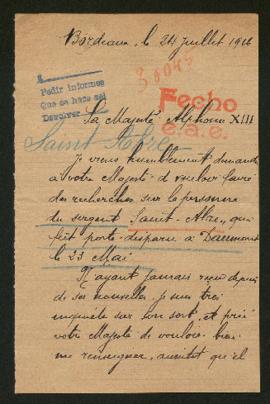 Bordeaux, le 24 Juillet 1916
30045
Pedir informes
Que se hace así
Devolver
Fecho
e.a.e.
Sa Majesté Alphonse XIII
Je viens humblement demander
à votre Majesté de vouloir faire
des recherches sur la personne
du sergent Saint-Alre, qui
fût porté disparu à Daumont
le 23 Mai
N'ayant jamais reçu depuis
de ses nouvelles, je suis très
inquiète sur son sort, et prie
votre Majesté de vouloir bien
me renseigner, aussitôt qu'il